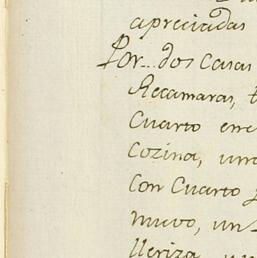 apreciadas
Por.. dos Casas
Recamaras,
Cuarto
Cozina,
Con Cuarto
nuevo, un
lleriza,